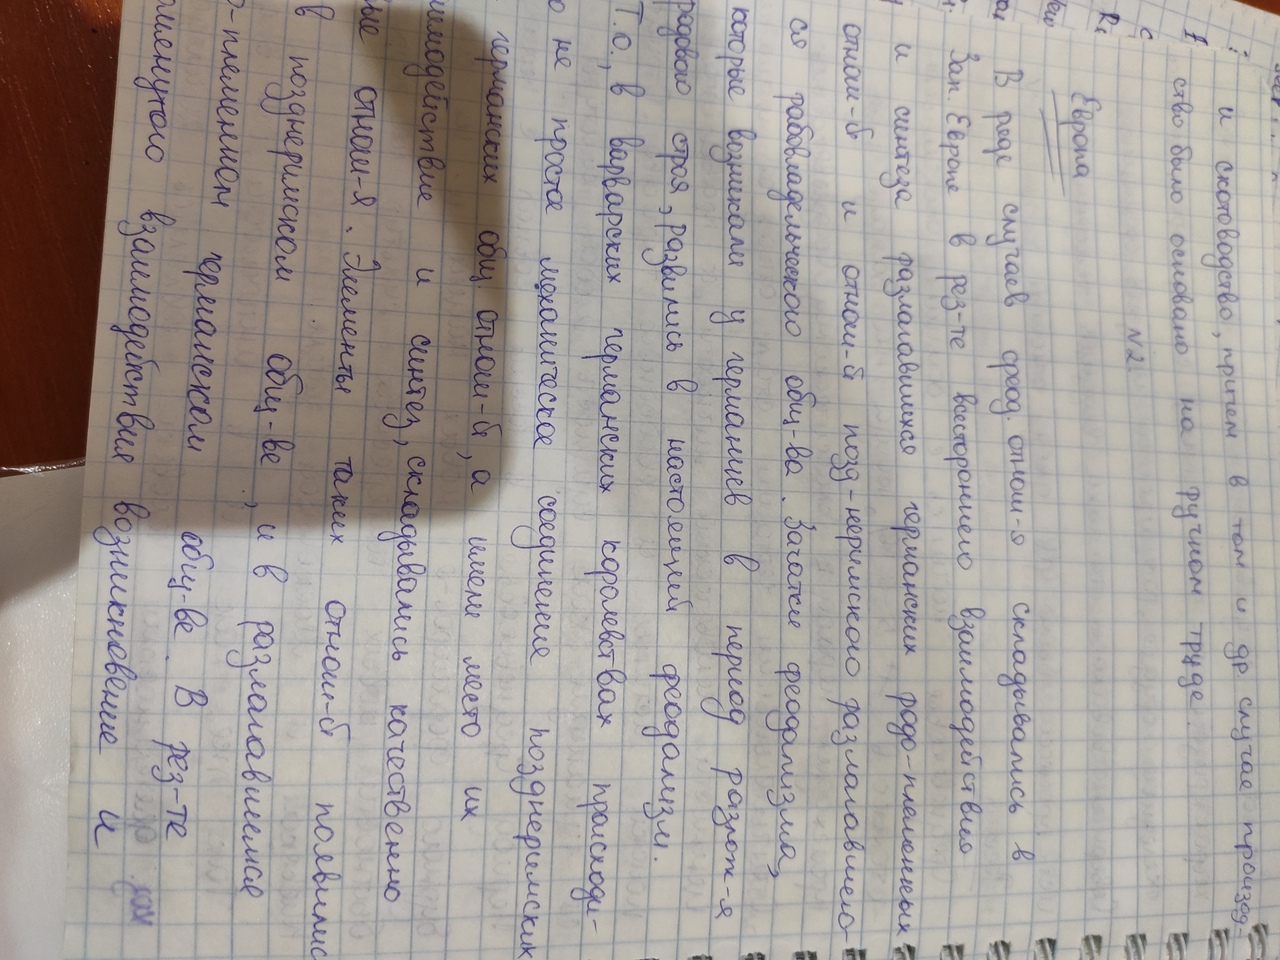 и скотоводство, причем в том и др. случае производ-
ство было основано на ручном труде.
N2.
Европа
В ряде случаев феод. отнош-я складывались в
Зап. Европе в рез-те всестороннего взаимодействия
и синтеза разлагавшихся германских родо-племенных
отнош-й и отнош-й позд-неримского разлагавшего-
ся рабовладельческого общ-ва. Зачатки феодализма,
которые возникали у германцев в период разлож-я
родового строя, развились в настоящий феодализм.
Т.о., в варварских германских королевствах происходи-
о не простое механическое соединение позднеримских
германских общ. отнош-й, а имели место их
имодействие и синтез, складывались качественно
ые отнош-я. Элементы таких отнош-й появились
в позднеримском общ-ве, и в разлагавшемся
о-племенном германском общ-ве. В рез-те
омянутого взаимодействия возникновение и